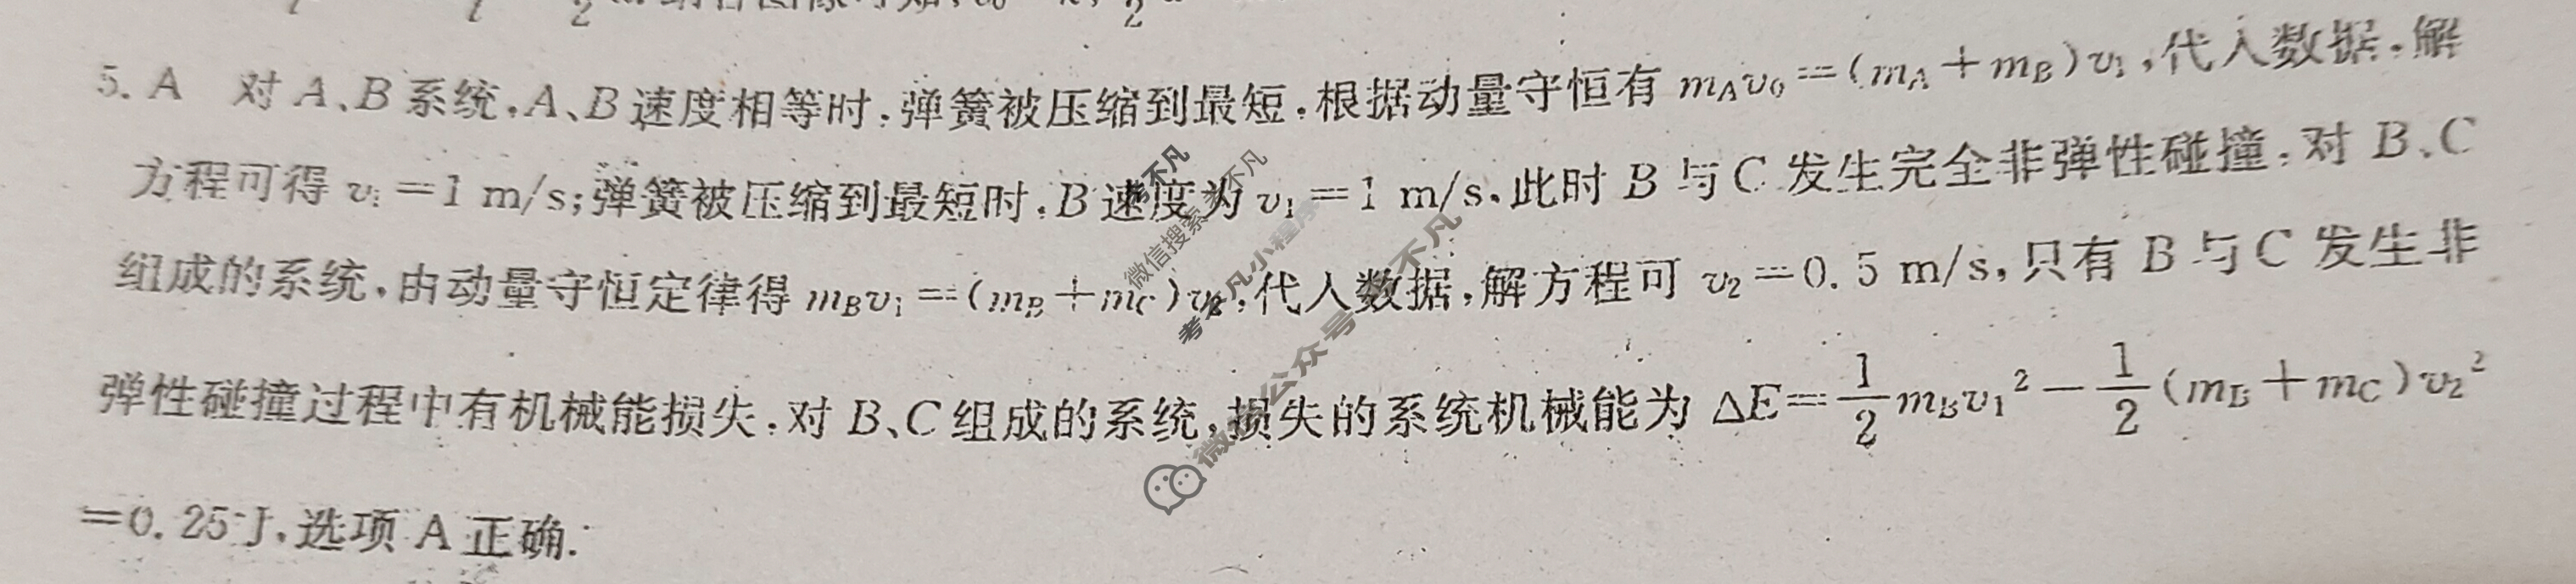 5. A 对 A、B 系统,A、B 速度相等时,弹簧被压缩到最短,根据动量守恒有 mAv0=(mA+mB)v1,代入数据,解
方程可得 v1=1 m/s;弹簧被压缩到最短时,B 速度为 v1=1 m/s,此时 B 与 C 发生完全非弹性碰撞,对 B、C
组成的系统,由动量守恒定律得 mBv1=(mB+mC)v2,代入数据,解方程可 v2=0.5 m/s,只有 B 与 C 发生非
弹性碰撞过程中有机械能损失,对 B、C 组成的系统,损失的系统机械能为 ΔE=1/2mBv1²-1/2(mB+mC)v2²
=0.25 J,选项 A 正确.
微信搜索
小程序
公众号
不凡